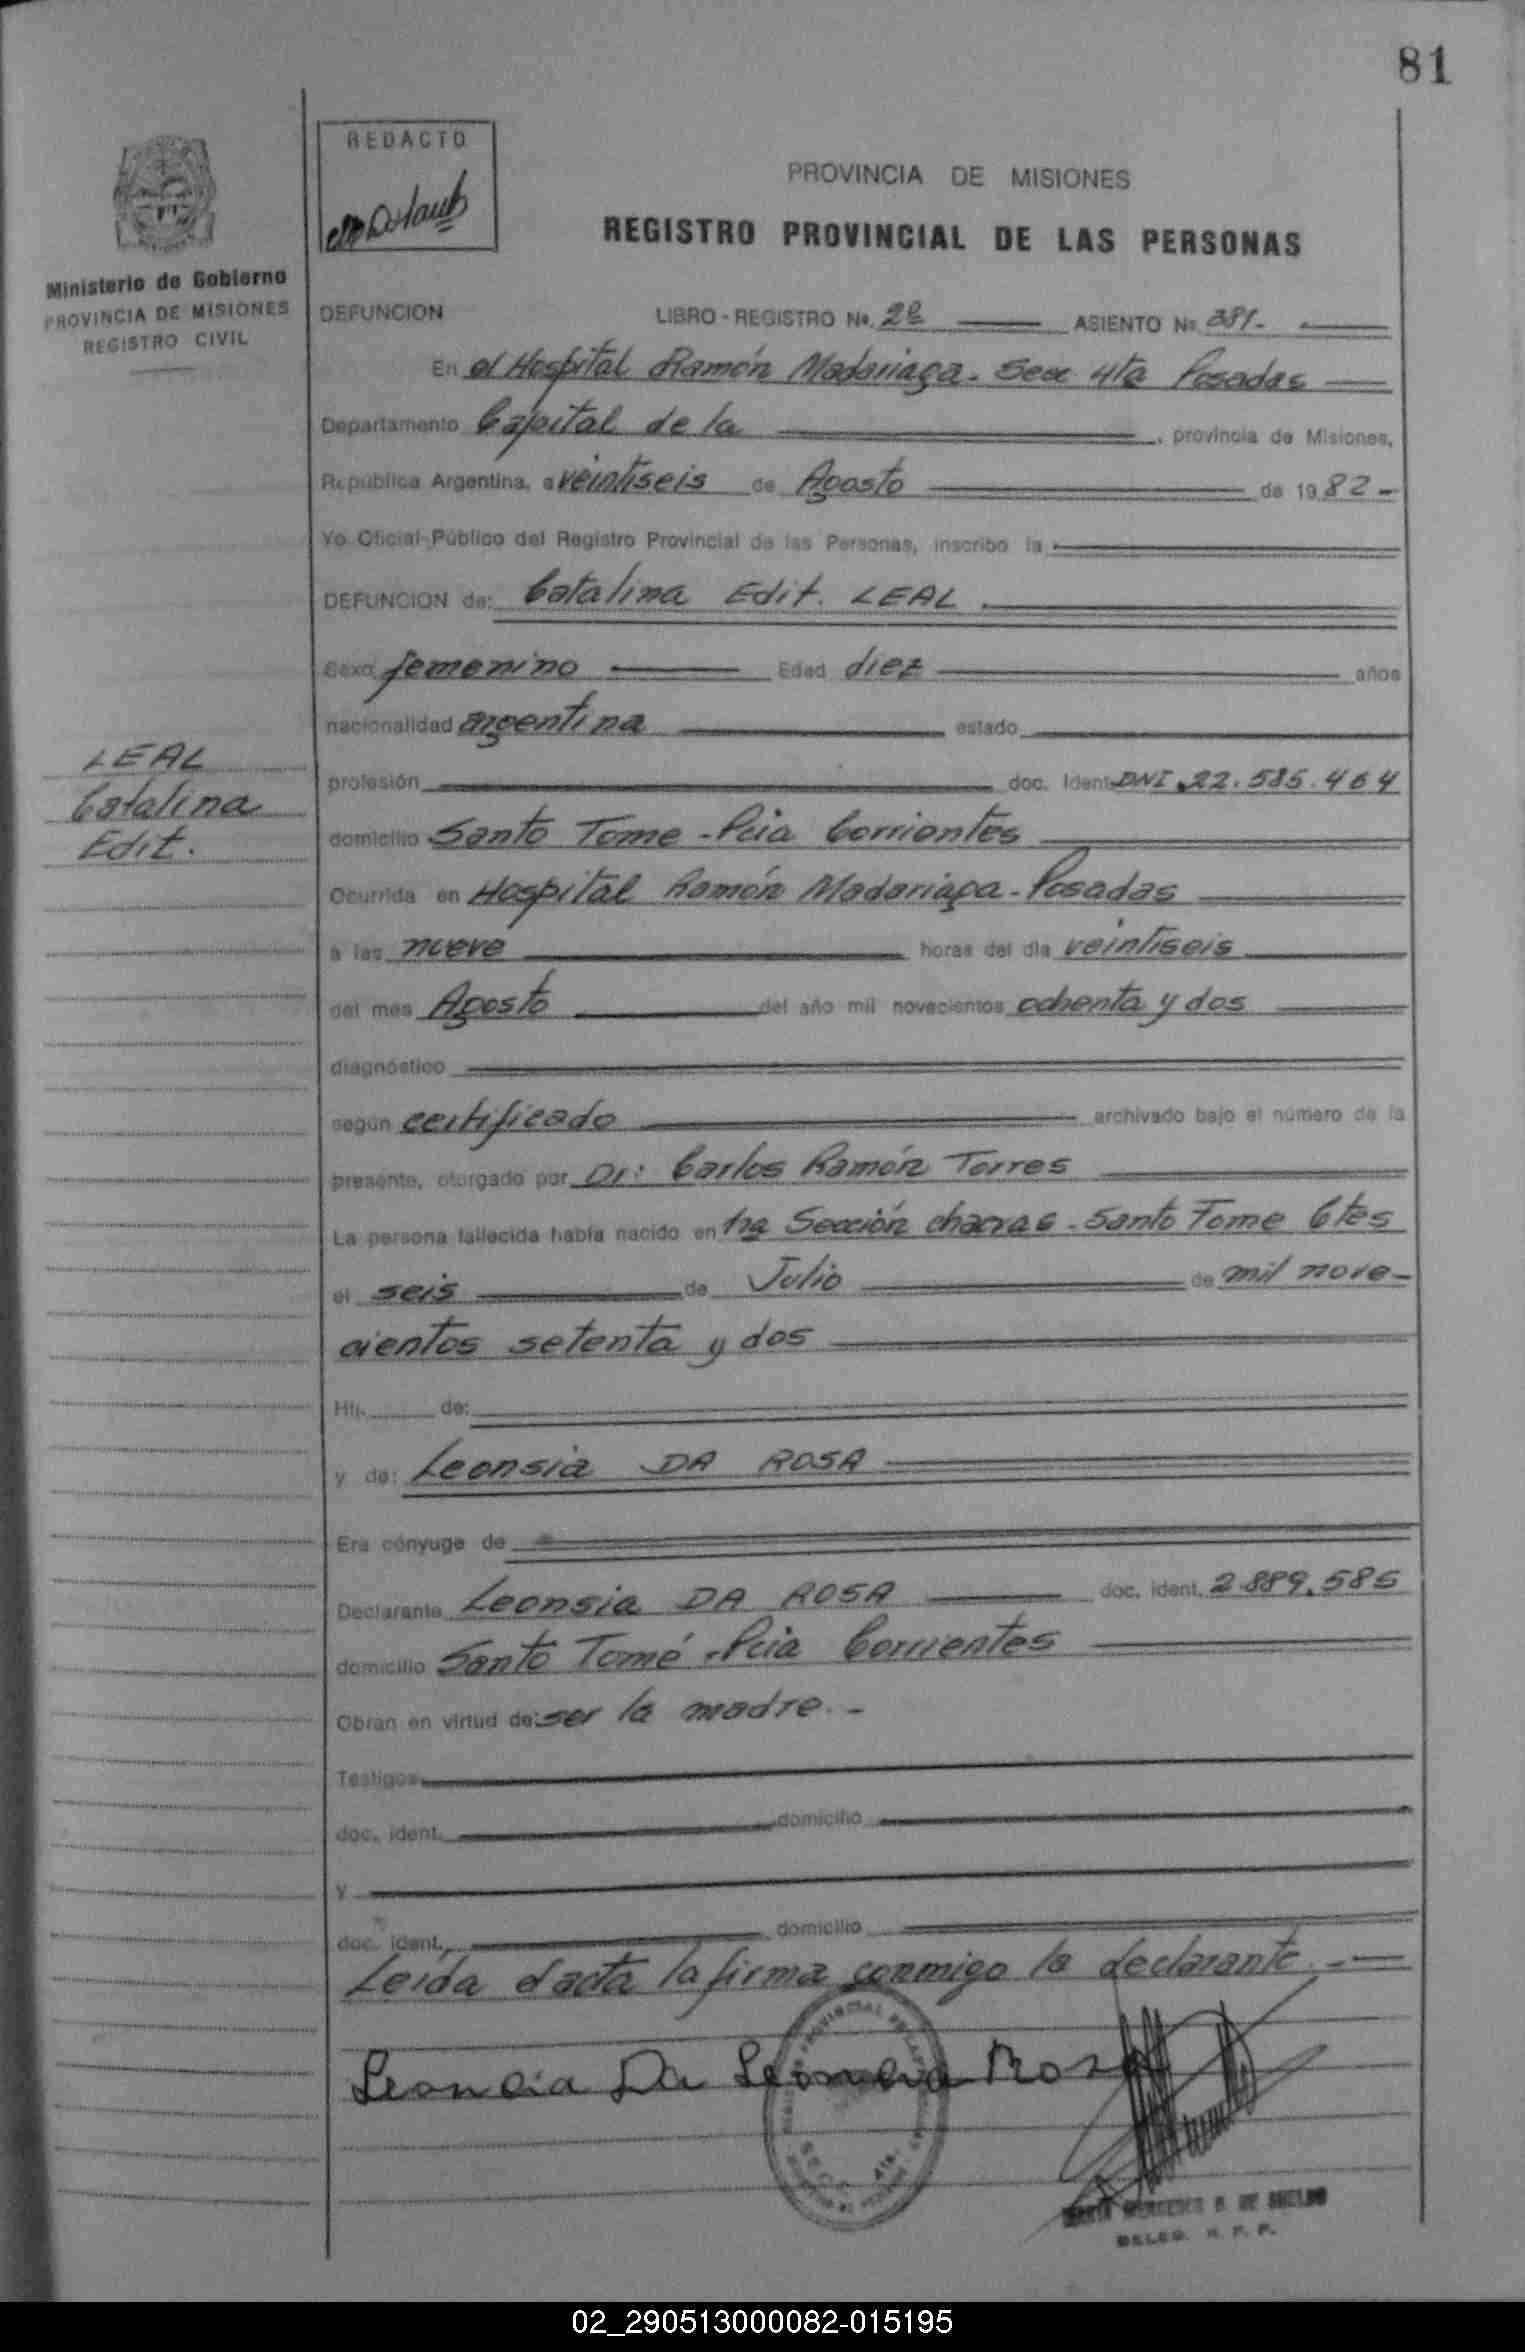 81
REDACTO
PROVINCIA DE MISIONES
REGISTRO PROVINCIAL DE LAS PERSONAS
Ministerio de Gobierno
PROVINCIA DE MISIONES
REGISTRO CIVIL
DEFUNCION LIBRO - REGISTRO No. 2º ASIENTO No 381.-
En el Hospital Ramón Madariaga. Secc 4ta Posadas
Departamento Capital de la , provincia de Misiones,
República Argentina, a veintiseis de Agosto de 1982-
Yo Oficial Público del Registro Provincial de las Personas, inscribo la
DEFUNCION de: Catalina Edit. LEAL
Sexo femenino Edad diez años
nacionalidad argentina estado
LEAL
Catalina
Edit.
profesión doc. Ident DNI 22.585.464
domicilio Santo Tome - Pcia Corrientes
Ocurrida en Hospital Ramón Madariaga - Posadas
a las nueve horas del día veintiseis
del mes Agosto del año mil novecientos ochenta y dos
diagnóstico
según certificado archivado bajo el número de la
presente, otorgado por Dr: Carlos Ramón Torres
La persona fallecida había nacido en 1ra Sección chacras - Santo Tome Ctes
el seis de Julio de mil nove-
cientos setenta y dos
Hij. de:
y de: Leonsia DA ROSA
Era cónyuge de
Declarante Leonsia DA ROSA doc. ident. 2.889.585
domicilio Santo Tomé - Pcia Corrientes
Obran en virtud de: ser la madre. -
Testigos
doc. ident. domicilio
y
doc. ident. domicilio
Leída el acta la firma conmigo la declarante. -
Leoncia Da Leoncia Rosa
DE
DELEG. R. P. P.
02_290513000082-015195